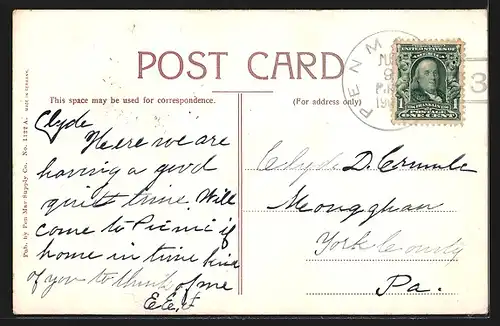 POST CARD
This space may be used for correspondence.
(For address only)
Pub. by Pen Mar Supply Co. No. 1122 A. MADE IN GERMANY.
PEN M
JU
9
190
3
UNITED STATES OF AMERICA
1 1
FRANKLIN
POSTAGE
ONE CENT
Clyde
Here we are
having a good
quiet time. Will
come to Picnic if
home in time kind
of you to think of me
E.E.
Clyde D.
Monaghan
York County
Pa.